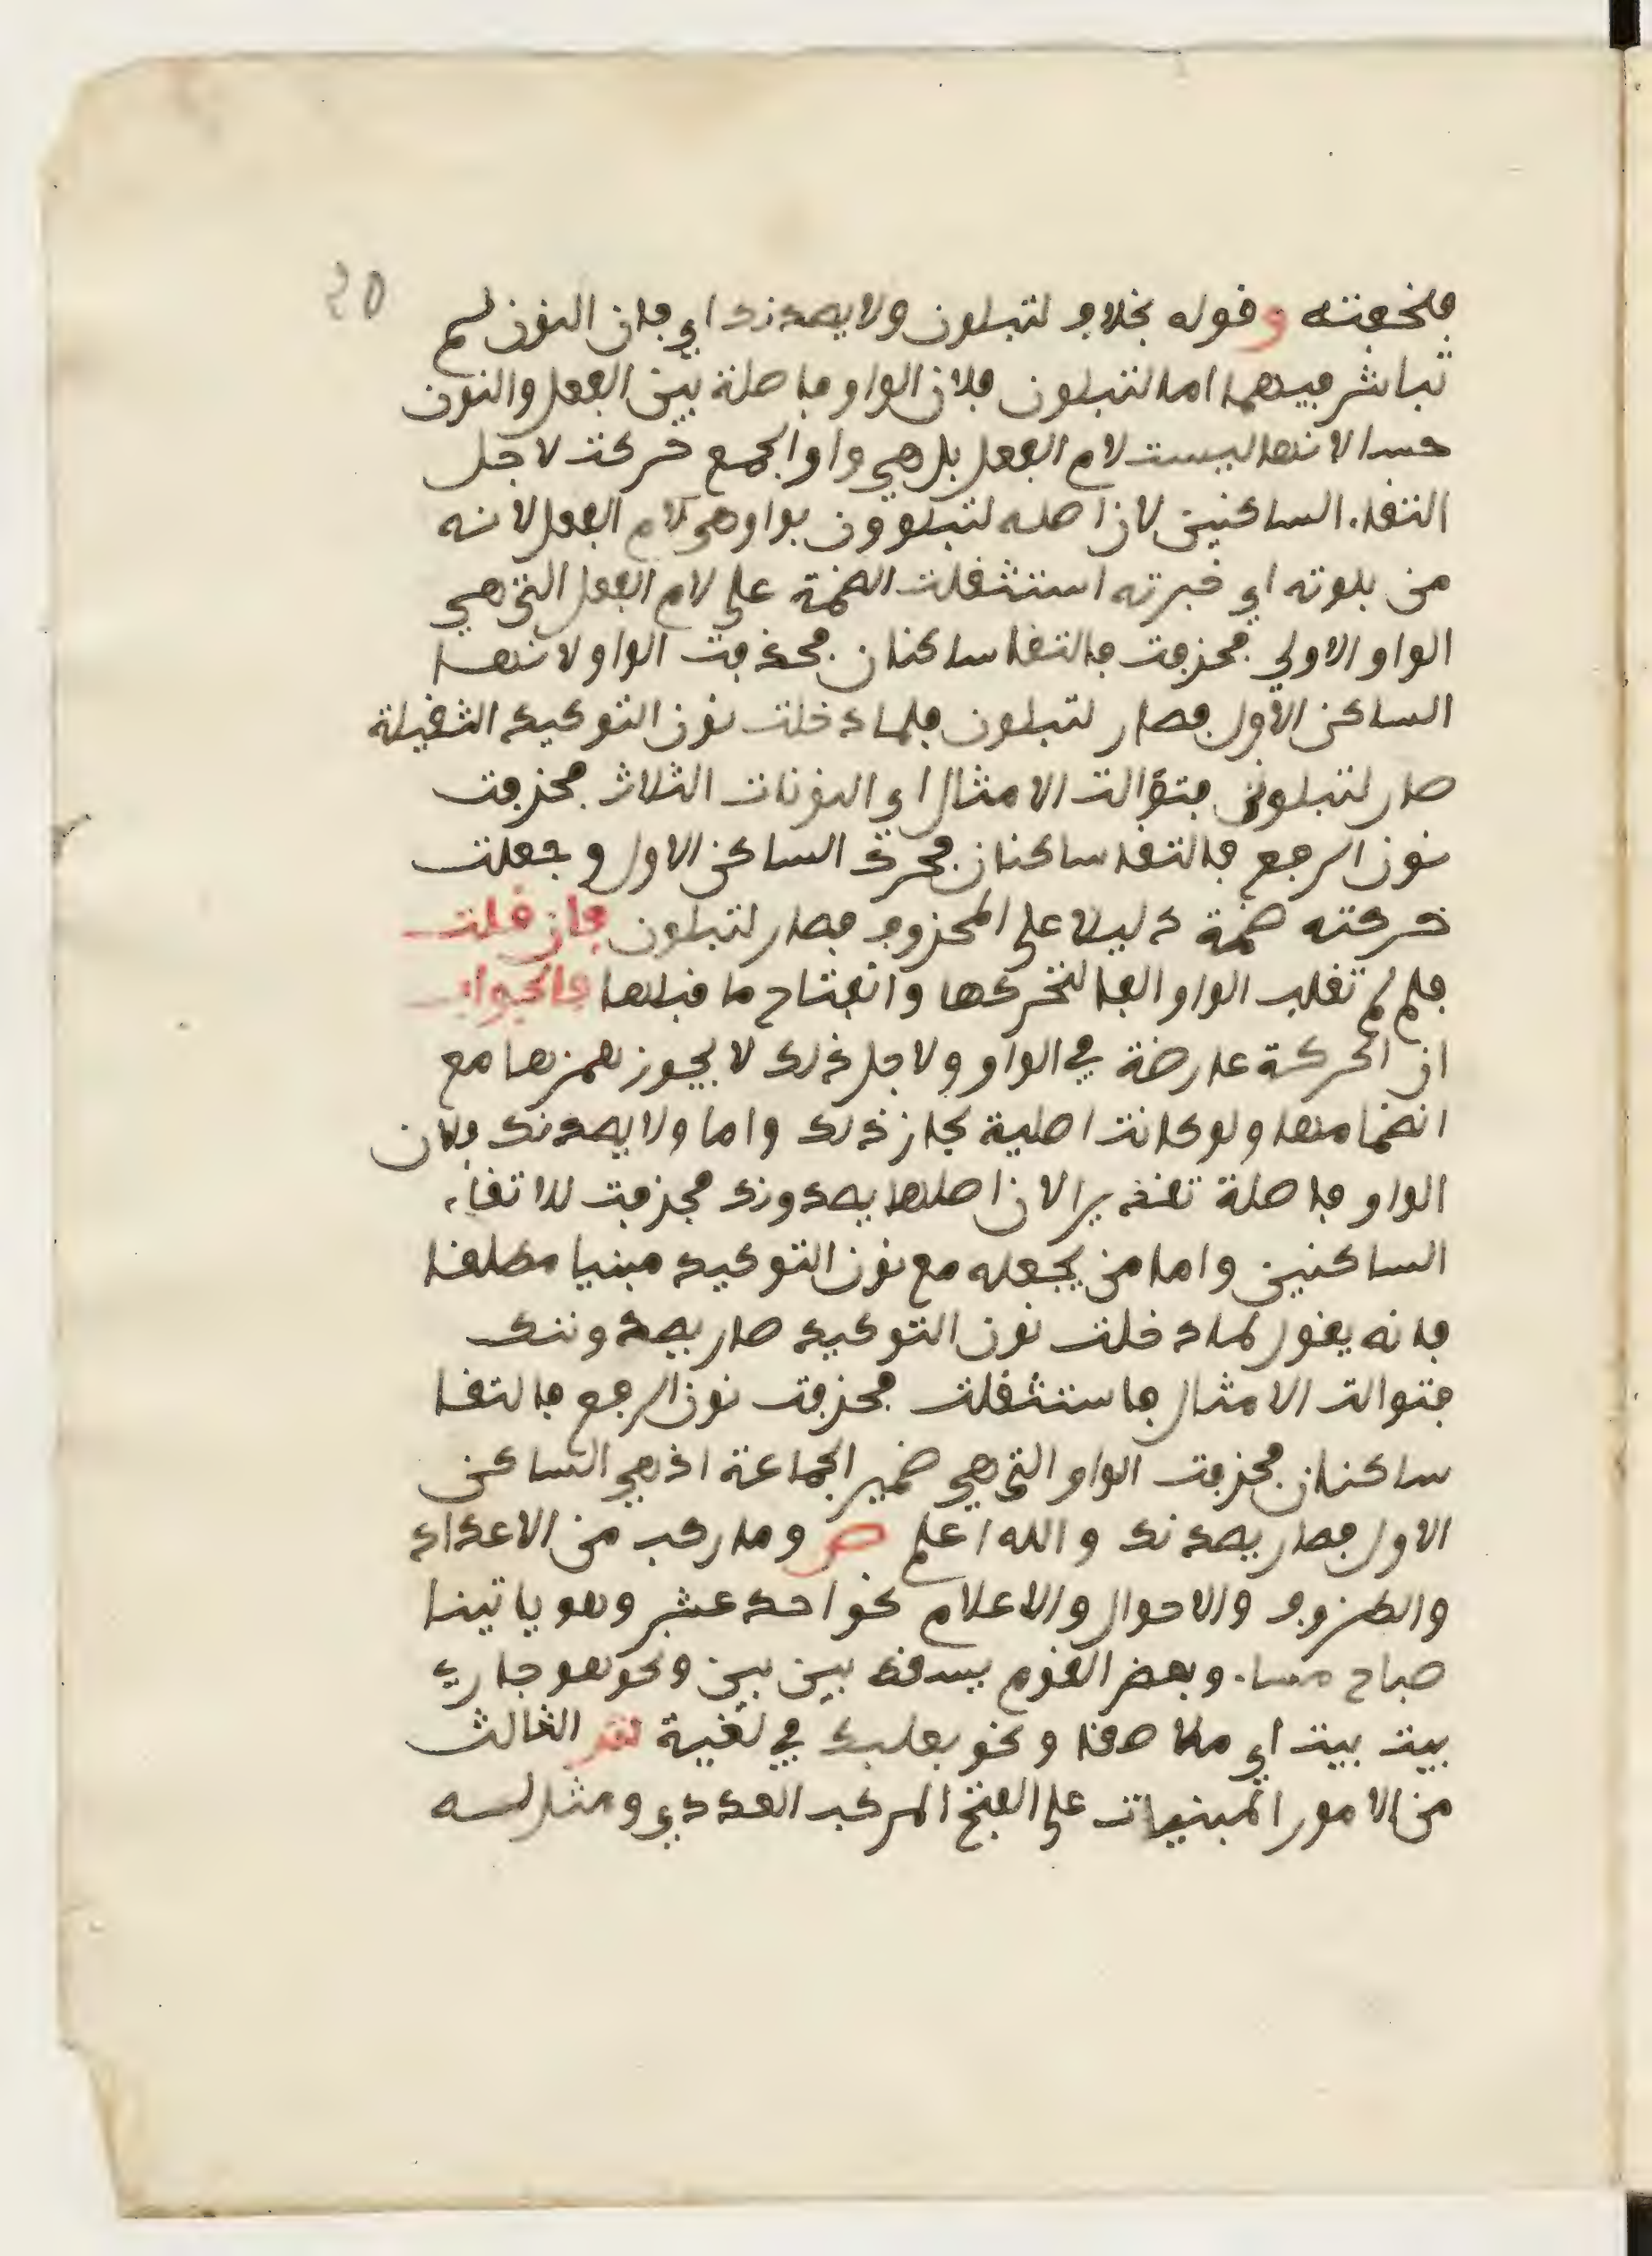 ٢٥
فلخفته وقوله بخلاف لتبلون ولا يصدنك اي فان النون لم
تباشر فيهما اما لتبلون فلان الواو فاصلة بين الفعل والنون
حسا لانها ليست لام الفعل بل هي واو الجمع حركت لاجل
التقاء الساكنين لان اصله لتبلوون بواو هي لام الفعل لانه
من بلوته اي خبرته استثقلت الضمة على لام الفعل التي هي
الواو الاولى فحذفت فالتقا ساكنان فحذفت الواو لانها
الساكن الاول فصار لتبلون فلما دخلت نون التوكيد الثقيلة
صار لتبلونن فتوالت الامثال اي النونات الثلاث فحذفت
نون الرفع فالتقا ساكنان فحرك الساكن الاول وجعلت
حركته ضمة دليلا على المحذوف فصار لتبلون فان قلت
فلم لم تقلب الواو الفا لتحركها وانفتاح ما قبلها فالجواب
ان الحركة عارضة في الواو ولاجل ذلك لا يجوز همزها مع
انضمامها ولو كانت اصلية لجاز ذلك واما ولا يصدنك فلان
الواو فاصلة تقديرا لان اصلها يصدونك فحذفت لالتقاء
الساكنين واما من يجعله مع نون التوكيد مبنيا مطلقا
فانه يقول لما دخلت نون التوكيد صار يصدوننك
فتوالت الامثال فاستثقلت فحذفت نون الرفع فالتقا
ساكنان فحذفت الواو التي هي ضمير الجماعة اذ هي الساكن
الاول فصار يصدنك والله اعلم ص وما ركب من الاعداد
والظروف والاحوال والاعلام نحو احد عشر وهو ياتينا
صباح مساء وبعض القوم يسقط بين بين ونحو هو جاري
بيت بيت اي ملاصقا ونحو بعلبك في لغية ش الثالث
من الامور المبنيات على الفتح المركب العددي ومثل له